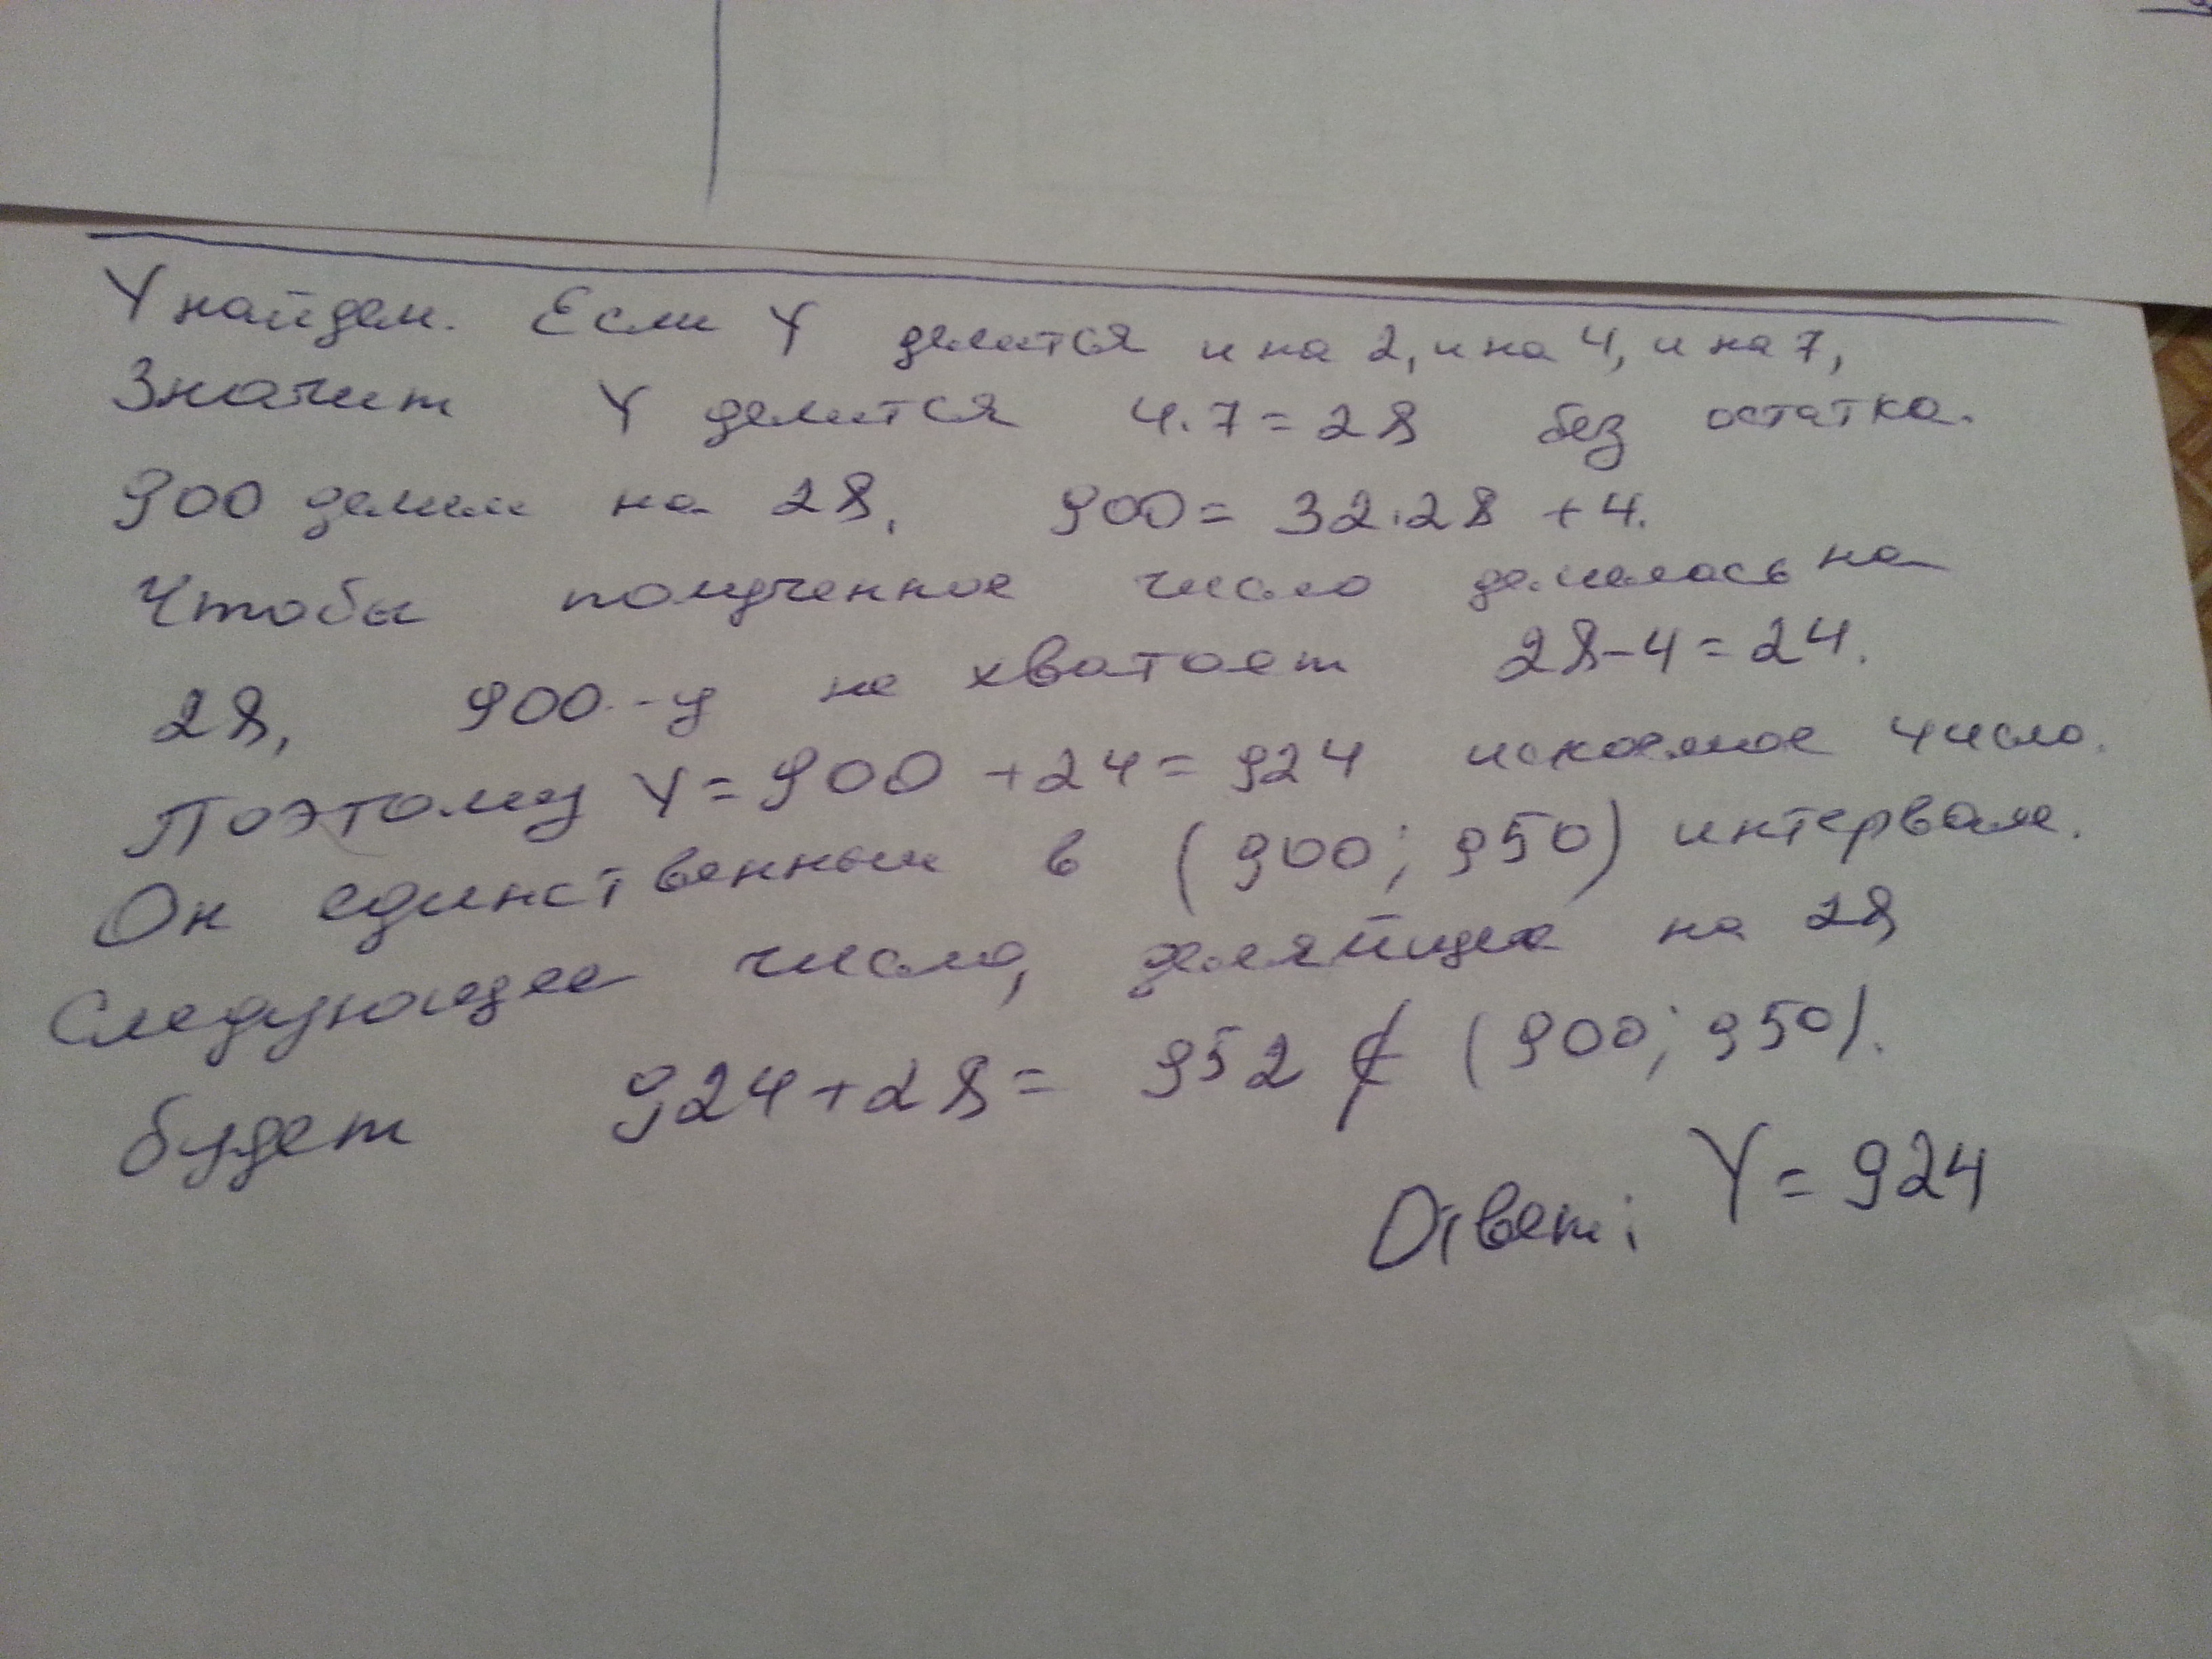 Y найдем. Если Y делится и на 2, и на 4, и на 7,
Значит Y делится 4·7=28 без остатка.
900 делим на 28. 900= 32·28 +4.
Чтобы полученное число делилась на
28, 900-у не хватает 28-4=24.
Поэтому Y=900 +24= 924 искоемое число.
Он единственный в (900; 950) интервале.
Следующее число, делящиеся на 28
будет 924+28= 952 ∉ (900; 950).
Ответ: Y= 924